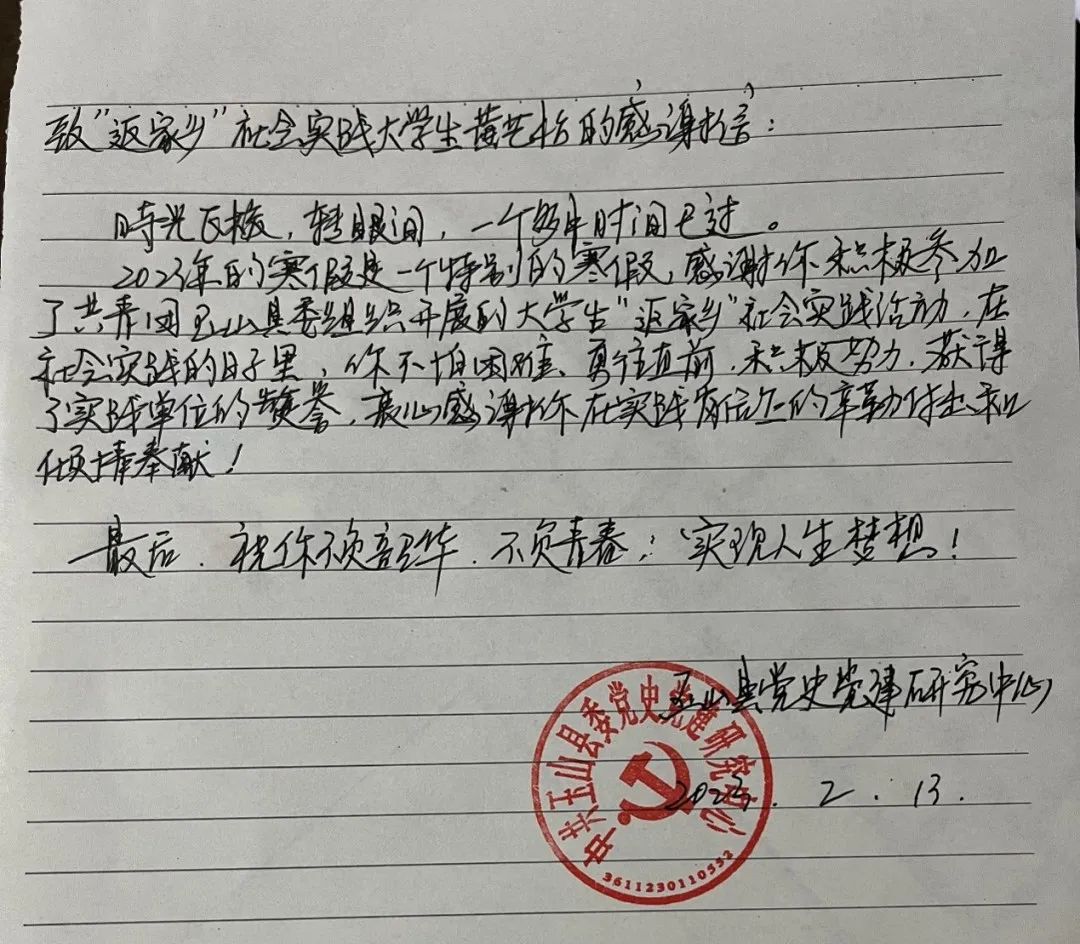 致"返家乡"社会实践大学生黄艺怡的感谢信：
时光飞梭，转眼间，一个多月时间已过。
2023年的寒假是一个特别的寒假，感谢你积极参加
了共青团玉山县委组织开展的大学生"返家乡"社会实践活动，在
社会实践的日子里，你不怕困难、勇往直前，积极努力，获得
了实践单位的赞誉，衷心感谢你在实践岗位上的辛勤付出和
倾情奉献！
最后，祝你不负韶华，不负青春，实现人生梦想！
玉山县党史党建研究中心
2023.2.13.
中共玉山县委党史党建研究中心
3611230110532